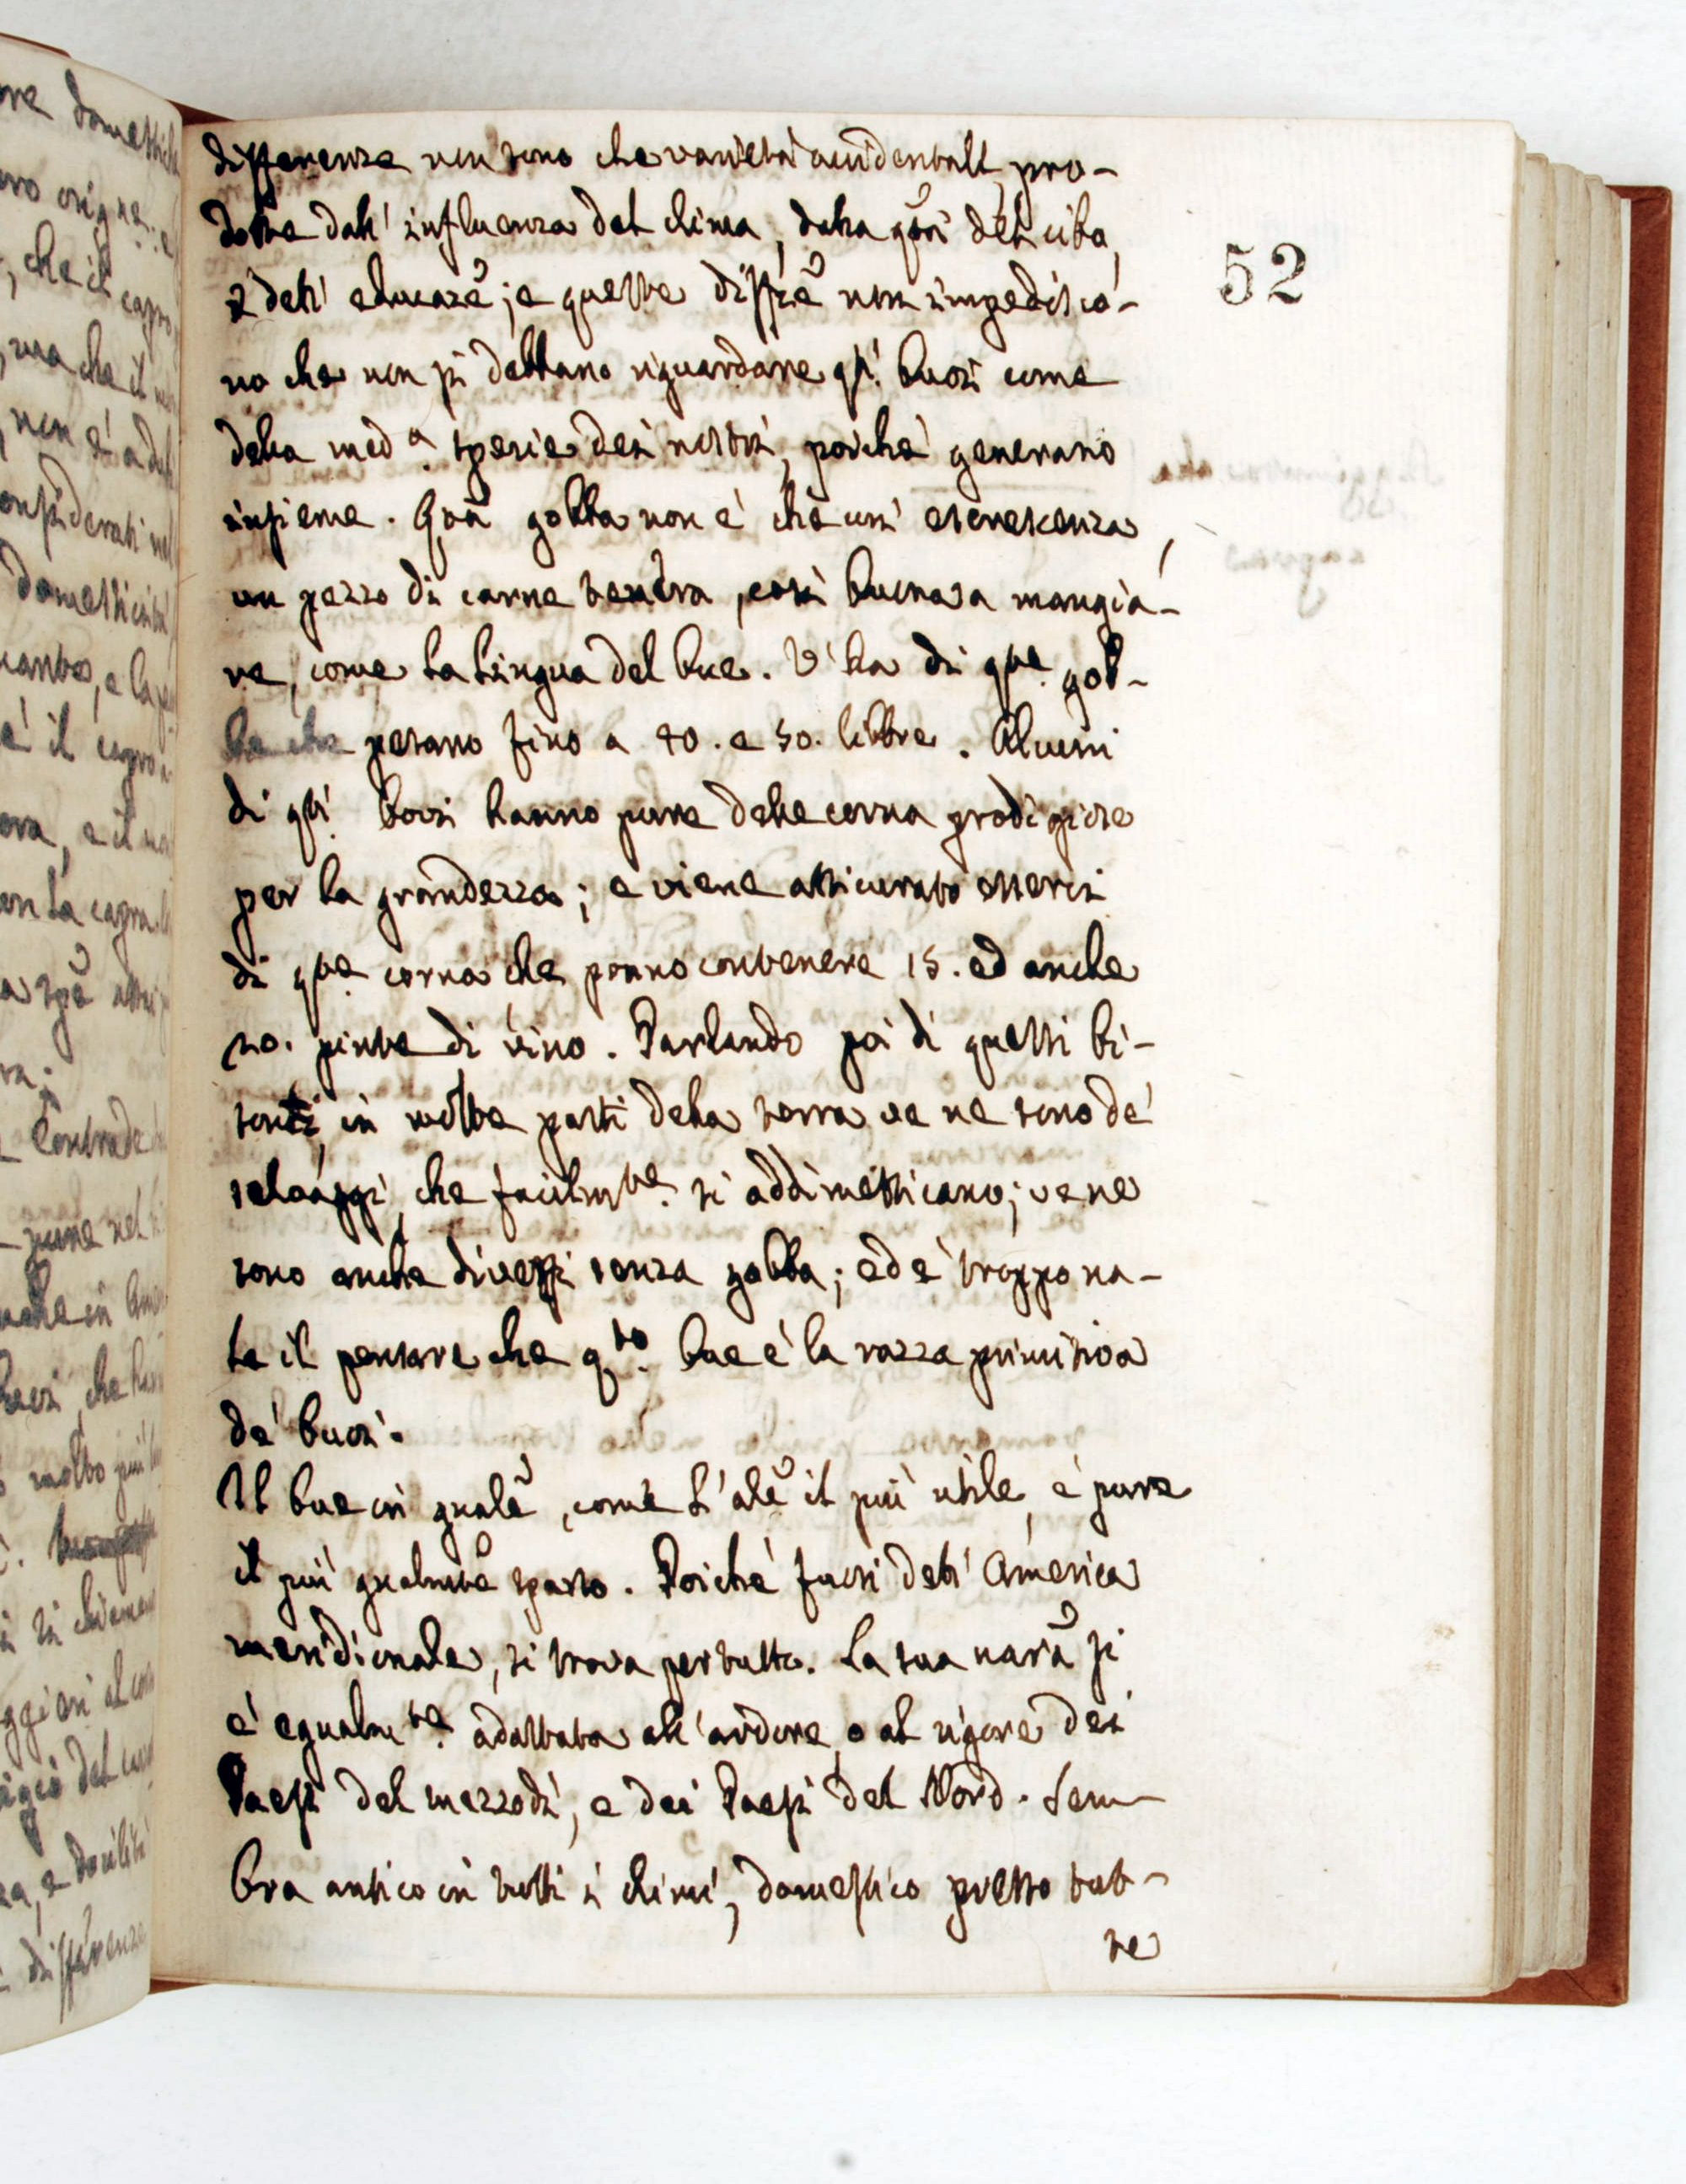 differenze non sono che varietà accidentali, pro-
dotte dall' influenza del clima, della qtà del cibo,
e dell' educazẽ; e queste diffzẽ non impedisco-
no che non si debbano riguardare qti buoi come
della med.a spezie dei nostri, poichè generano
insieme. Qta gobba non è che un' escrescenza,
un pezzo di carne tenera, così buona a mangia-
re, come la lingua del bue. V' ha di qte gob-
be che pesano fino a 40. e 50. libbre. Alcuni
di qti bovi hanno pure delle corna prodigiose
per la grandezza; e viene assicurato esserci
di qte corna che ponno contenere 15. ed anche
20. pinte di vino. Parlando poi di questi bi-
sonti, in molte parti della terra ve ne sono de'
selvaggi, che facilmte. si addimesticano; ve ne
sono anche diversi senza gobba; ed è troppo na-
le il pensare che qto. bue è la razza primitiva
de' buoi.
Il bue in gnalẽ, come l' alẽ il più utile, è pure
il più gnalmte sparso. Poichè fuori dell' America
meridionale, si trova pertutto. La sua narã si
è egualmte. adattata all' ardore, o al rigore dei
Paesi del mezzodì, e dei Paesi del Nord. Sem-
bra antico in tutti i climi, domestico presso tut-
te
52